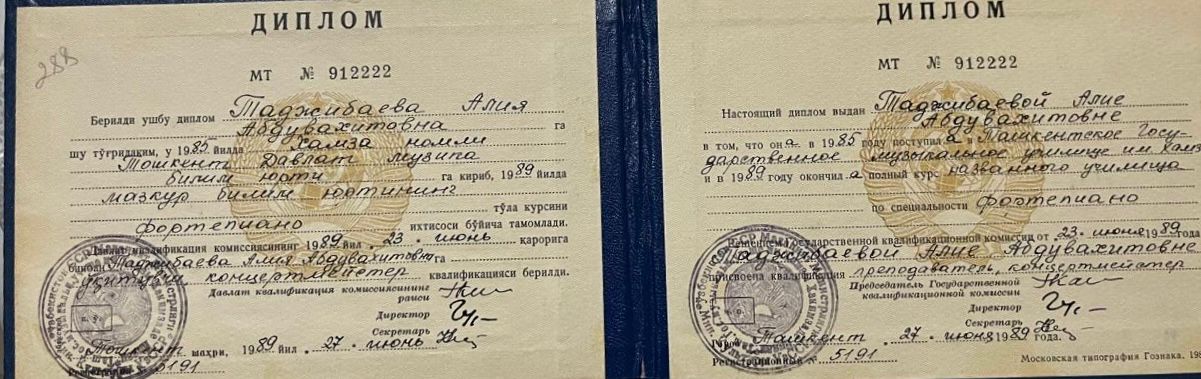 288
ДИПЛОМ
МТ № 912222
Берилди ушбу диплом Таджибаева Алия
Абдувахитовна га
шу тўғридаким, у 1985 йилда Хамза номли
Тошкент Давлат музика
билим юрти га кириб, 1989 йилда
мазкур билим юртининг
тўла курсини
фортепиано ихтисоси бўйича тамомлади.
Давлат квалификация комиссиясининг 1989 йил 23 июнь қарорига
биноан Таджибаева Алия Абдувахитовна га
ўқитувчи, концертмейстер квалификацияси берилди.
Давлат квалификация комиссиясининг
раиси
Директор
Секретарь
Тошкент шаҳри, 1989 йил 27 июнь
5191
ДИПЛОМ
МТ № 912222
Настоящий диплом выдан Таджибаевой Алие
Абдувахитовне
в том, что она в 1985 году поступила в Ташкентское Госу-
дарственное музыкальное училище им. Хамз
и в 1989 году окончила полный курс названного училища
по специальности фортепиано
Решением Государственной квалификационной комиссии от 23 июня 1989 года
Таджибаевой Алие Абдувахитовне
присвоена квалификация преподаватель, концертмейстер
Председатель Государственной
квалификационной комиссии
Директор
Секретарь
Город Ташкент 27 июня 1989 года.
Регистрационный № 5191
Московская типография Гознака. 198